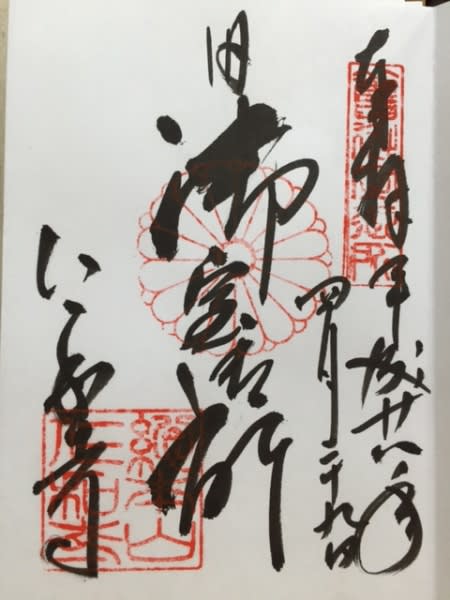 奉拝 平成廿八年
四月二十九日
旧御室御所
仁和寺